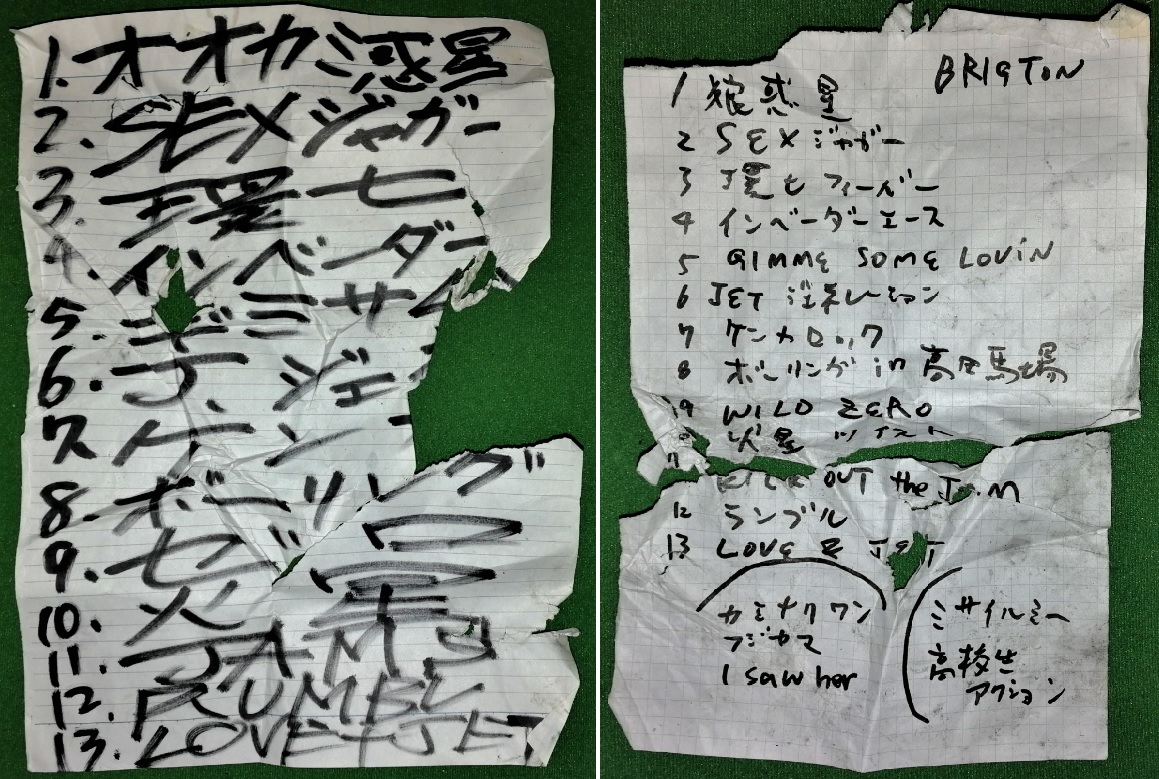 1. オオカミ惑星
2. SEX ジャガー
3. 環七
4. インベーダー
5. ギミサム
6. J. ジェネ
7. ケン
8. ボーリング
9. ゼロ
10. 火星
11. JAMS
12. RUMBL
13. LOVE+JET
BRIGTON
1 狼惑星
2 SEX ジャガー
3 環七フィーバー
4 インベーダーエース
5 GIMME SOME LOVIN
6 JET ジェネレーション
7 ケンカロック
8 ボーリング in 高田馬場
9 WILD ZERO
10 火星ツイスト
11 KICK OUT the JAM
12 ランブル
13 LOVE & JET
カミナリワン
フジヤマ
I saw her
ミサイルミー
高校生
アクション